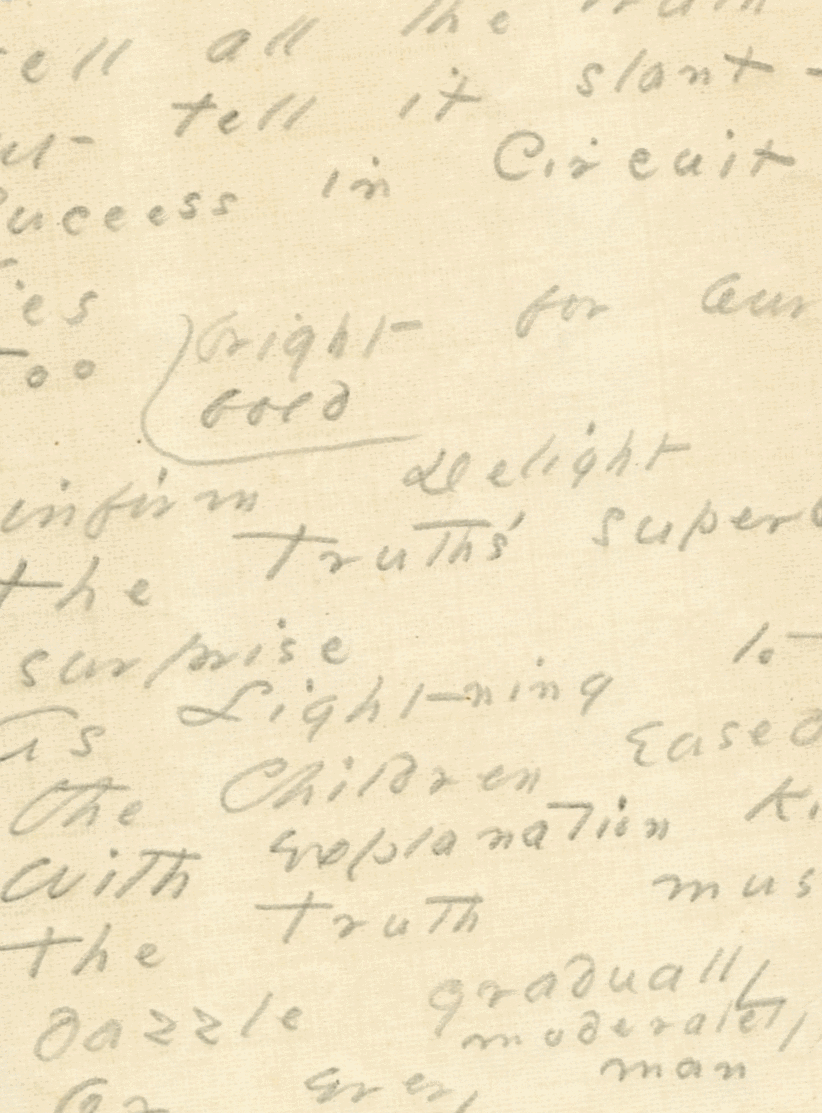 ell all the truth
ut tell it slant -
Success in Circuit
ies
Too bright for our
bold
infirm Delight
the Truths' super
surprise
As Lightning to
the Children Eased
With explanation Ki
the Truth mus
Dazzle gradually
moderately
Or every man